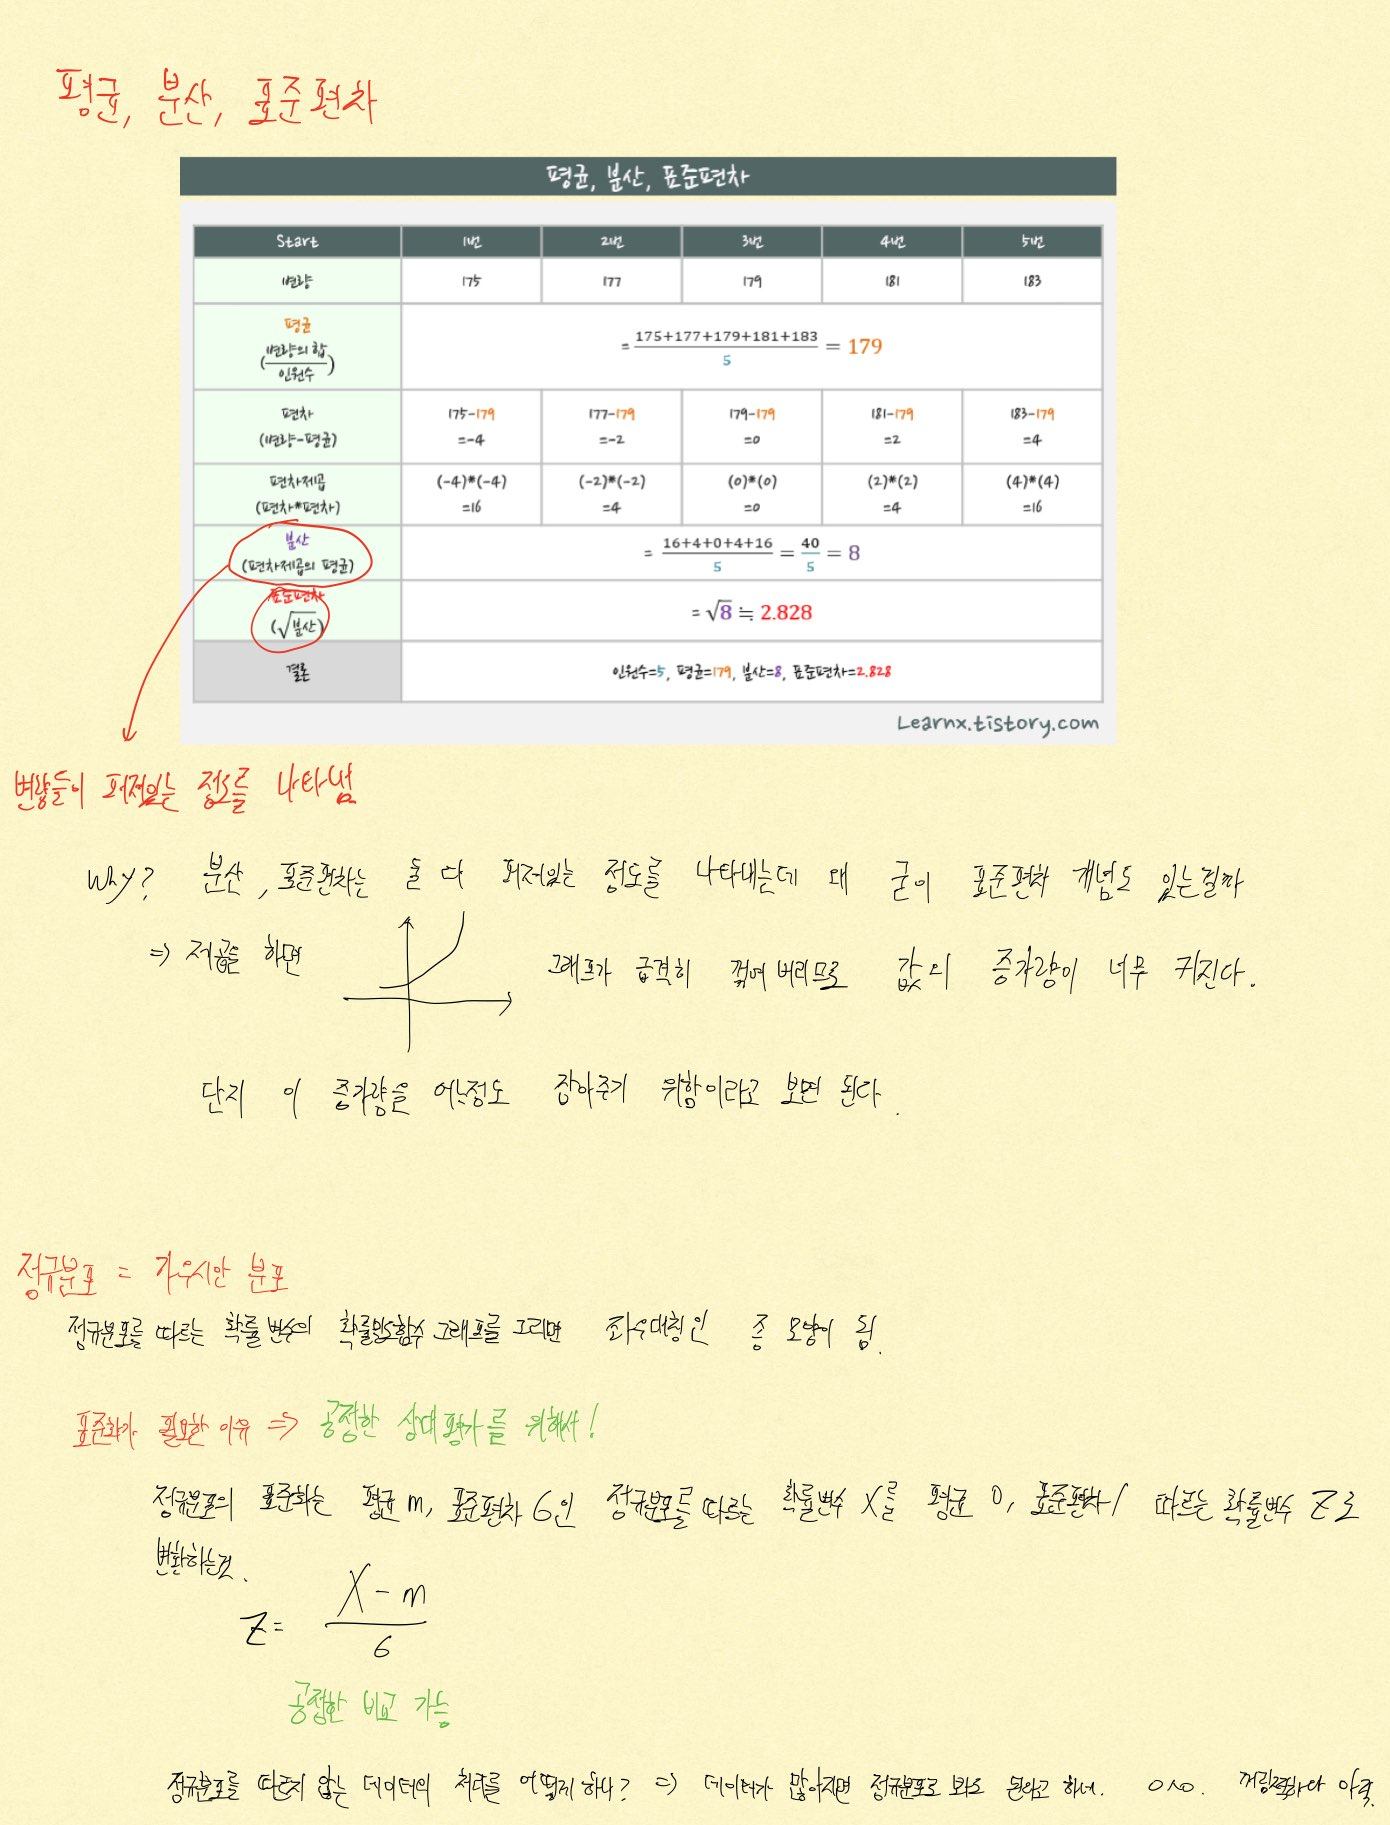 평균, 분산, 표준편차
평균, 분산, 표준편차
Start 1번 2번 3번 4번 5번
변량 175 177 179 181 183
평균
(변량의 합/인원수)
=(175+177+179+181+183)/5 = 179
편차
(변량-평균)
175-179 177-179 179-179 181-179 183-179
=-4 =-2 =0 =2 =4
편차제곱
(편차*편차)
(-4)*(-4) (-2)*(-2) (0)*(0) (2)*(2) (4)*(4)
=16 =4 =0 =4 =16
분산
(편차제곱의 평균)
= (16+4+0+4+16)/5 = 40/5 = 8
표준편차
(√분산)
= √8 ≒ 2.828
결론 인원수=5, 평균=179, 분산=8, 표준편차=2.828
Learnx.tistory.com
변량들이 퍼져있는 정도를 나타냄
Why? 분산, 표준편차는 둘 다 퍼져있는 정도를 나타내는데 왜 굳이 표준편차 개념도 있는걸까
⇒ 제곱을 하면 그래프가 급격히 꺾여 버리므로 값의 증가량이 너무 커진다.
단지 이 증가량을 어느정도 잡아주기 위함이라고 보면 된다.
정규분포 = 가우시안 분포
정규분포를 따르는 확률 변수의 확률밀도함수 그래프를 그리면 좌우대칭인 종 모양이 됨.
표준화가 필요한 이유 ⇒ 공정한 상대평가를 위해서!
정규분포의 표준화는 평균 m, 표준편차 6인 정규분포를 따르는 확률변수 X를 평균 0, 표준편차 1 따르는 확률변수 Z로
변환하는것.
Z = (X-m)/6
공정한 비교 가능
정규분포를 따르지 않는 데이터의 처리를 어떻게 하나? ⇒ 데이터가 많아지면 정규분포로 봐도 된다고 하네. 아직.